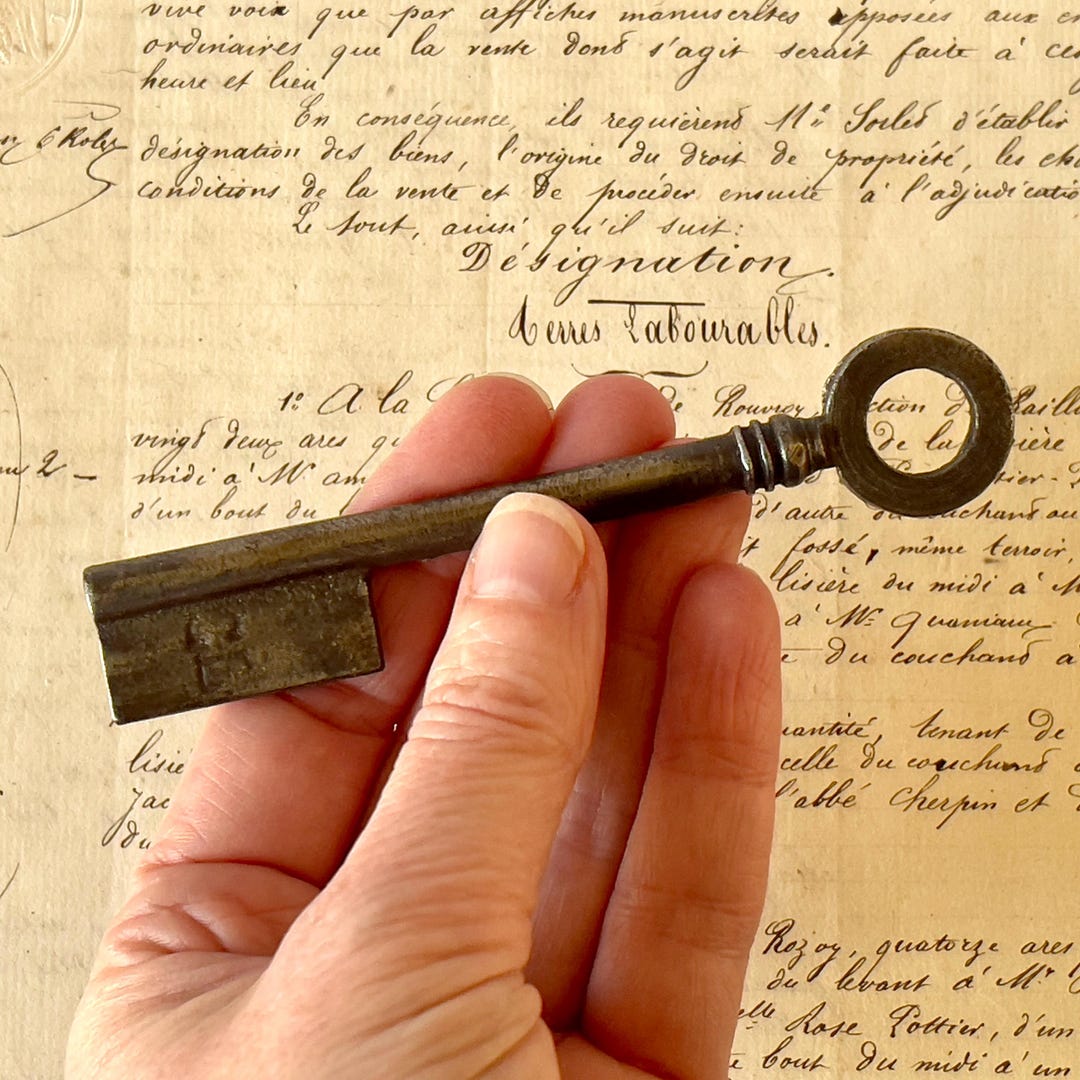 vive voix que par affiches manuscrites apposées aux
ordinaires que la vente dont s'agit serait faite à ces
heure et lieu
En conséquence, ils requièrent Mᵉ d'établir
désignation des biens, l'origine du droit de propriété, les
conditions de la vente et de procéder ensuite à l'adjudicatio
Le tout, ainsi qu'il suit:
Désignation.
Terres Labourables.
1º A la de Rouvroy,
vingt deux ares de la
2 midi à Mʳ
d'un bout du d'autre du couchant au
fossé, même terroir,
lisière du midi à
à Mʳ
du couchant
uantité, tenant de
lisiè celle du couchant
l'abbé Cherpin et
du
Rozoy, quatorze ares
du levant à Mʳ
elle Rose Pottier, d'un
bout du midi à un